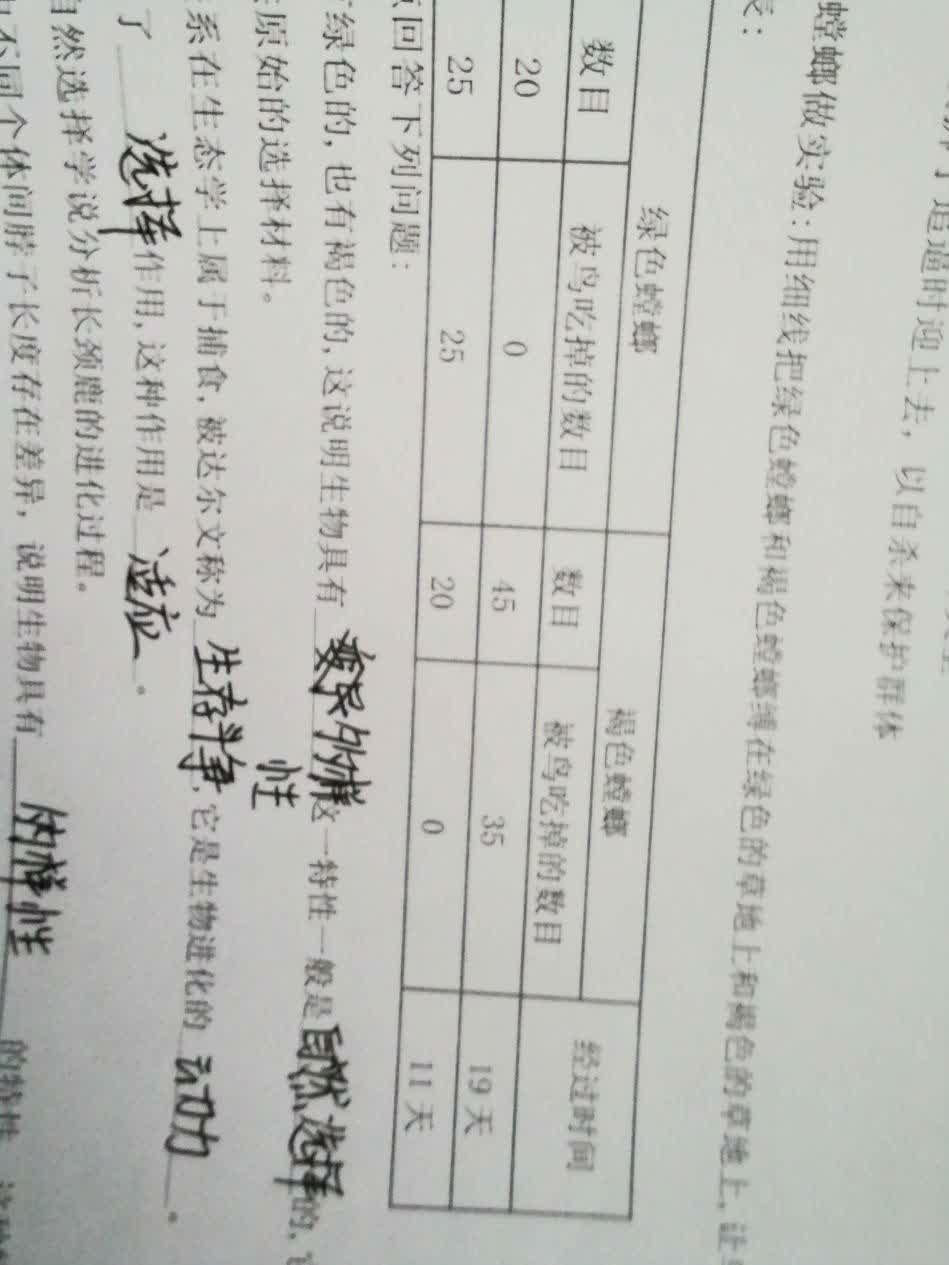 适逼时迎上去，以自杀来保护群体
螳螂做实验：用细线把绿色螳螂和褐色螳螂缚在绿色的草地上和褐色的草地上，让
表：
绿色螳螂 褐色螳螂 经过时间
数目 被鸟吃掉的数目 数目 被鸟吃掉的数目
20 0 45 35 19天
25 25 20 0 11天
回答下列问题：
绿色的，也有褐色的，这说明生物具有变异 性这一特性一般是自然选择的，
原始的选择材料。
系在生态学上属于捕食，被达尔文称为生存斗争，它是生物进化的动力。
了选择作用，这种作用是适应。
自然选择学说分析长颈鹿的进化过程。
不同个体间脖子长度存在差异，说明生物具有 样性的特性